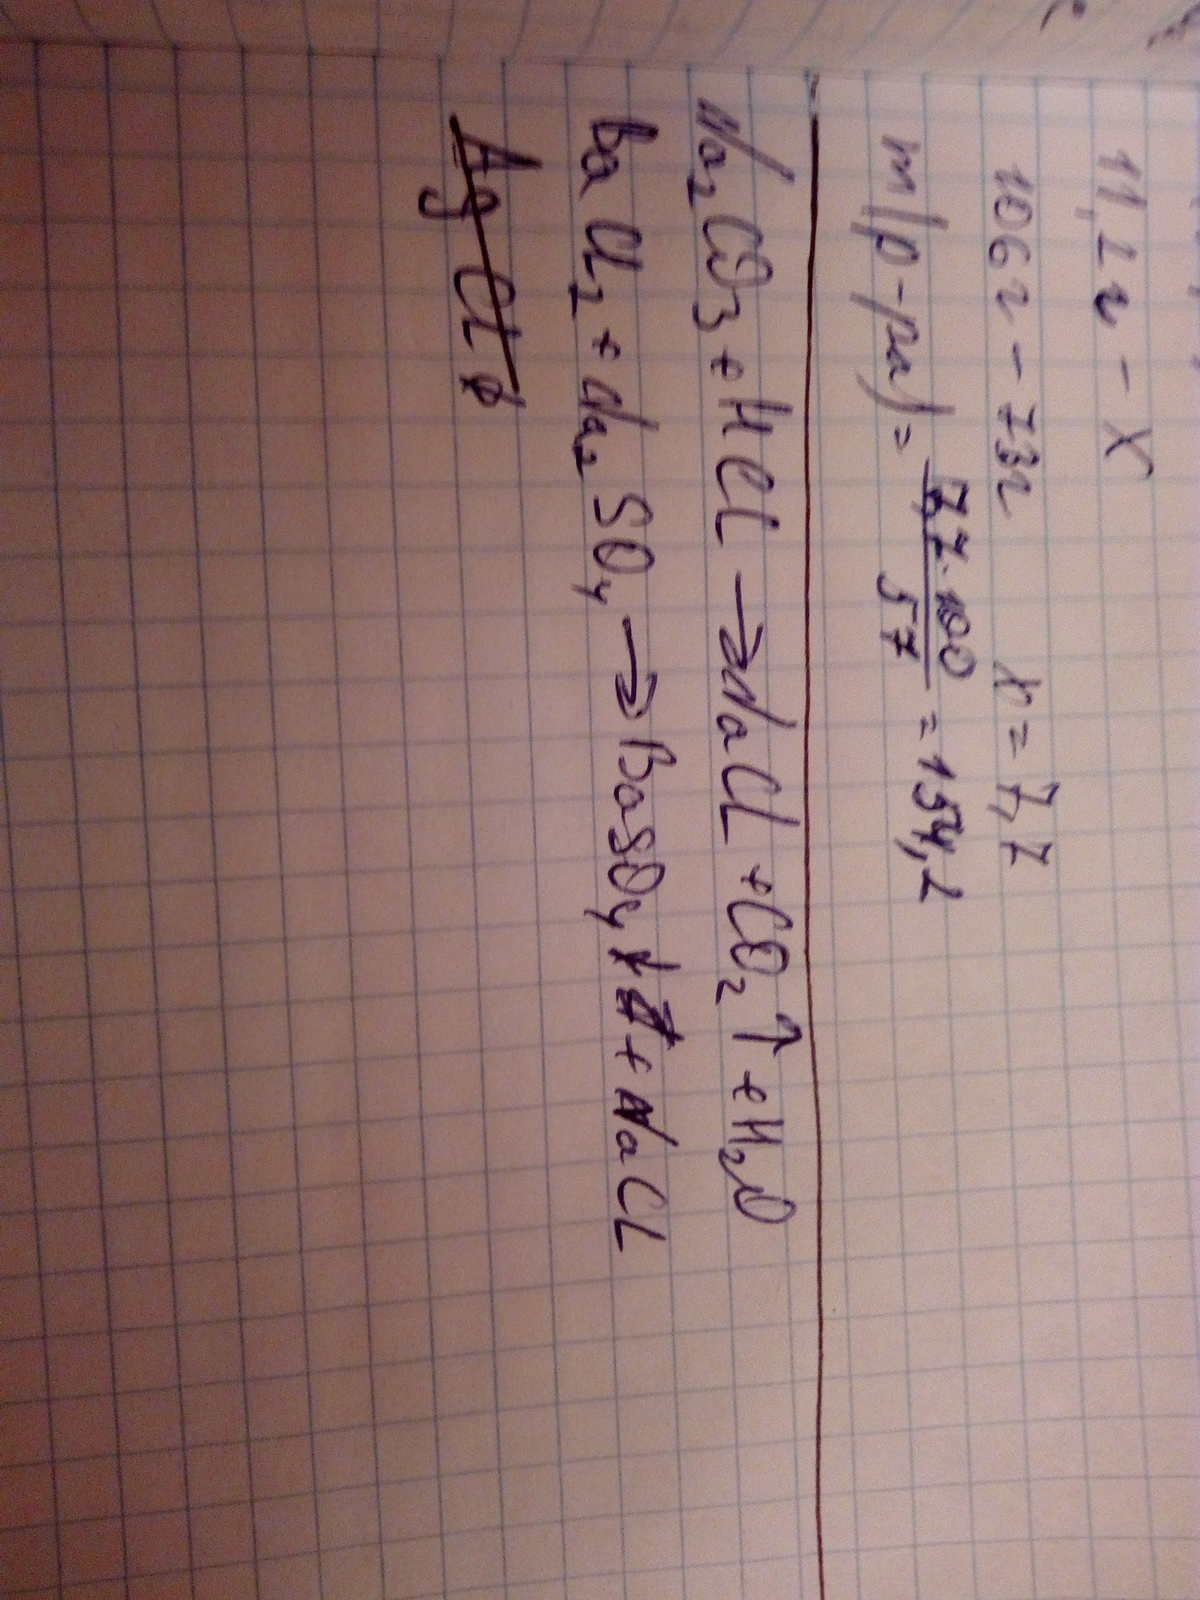 11,2г - X
106г - 73г X = 7,7
m(р-ра) = 7,7·100 / 5% = 154,2
Na₂CO₃ + HCl → NaCl + CO₂↑ + H₂O
BaCl₂ + Na₂SO₄ → BaSO₄↓ + NaCl
AgCl